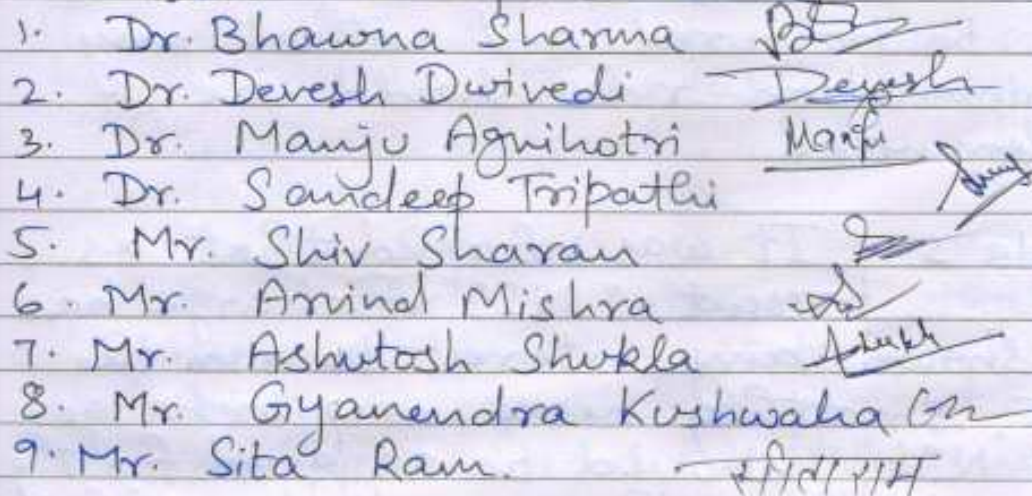 1. Dr. Bhawna Sharma
2. Dr. Devesh Dwivedi Devesh
3. Dr. Manju Agnihotri Manju
4. Dr. Sandeep Tripathi
5. Mr. Shiv Sharan
6. Mr. Arvind Mishra
7. Mr. Ashutosh Shukla
8. Mr. Gyanendra Kushwaha
9. Mr. Sita Ram. सीताराम